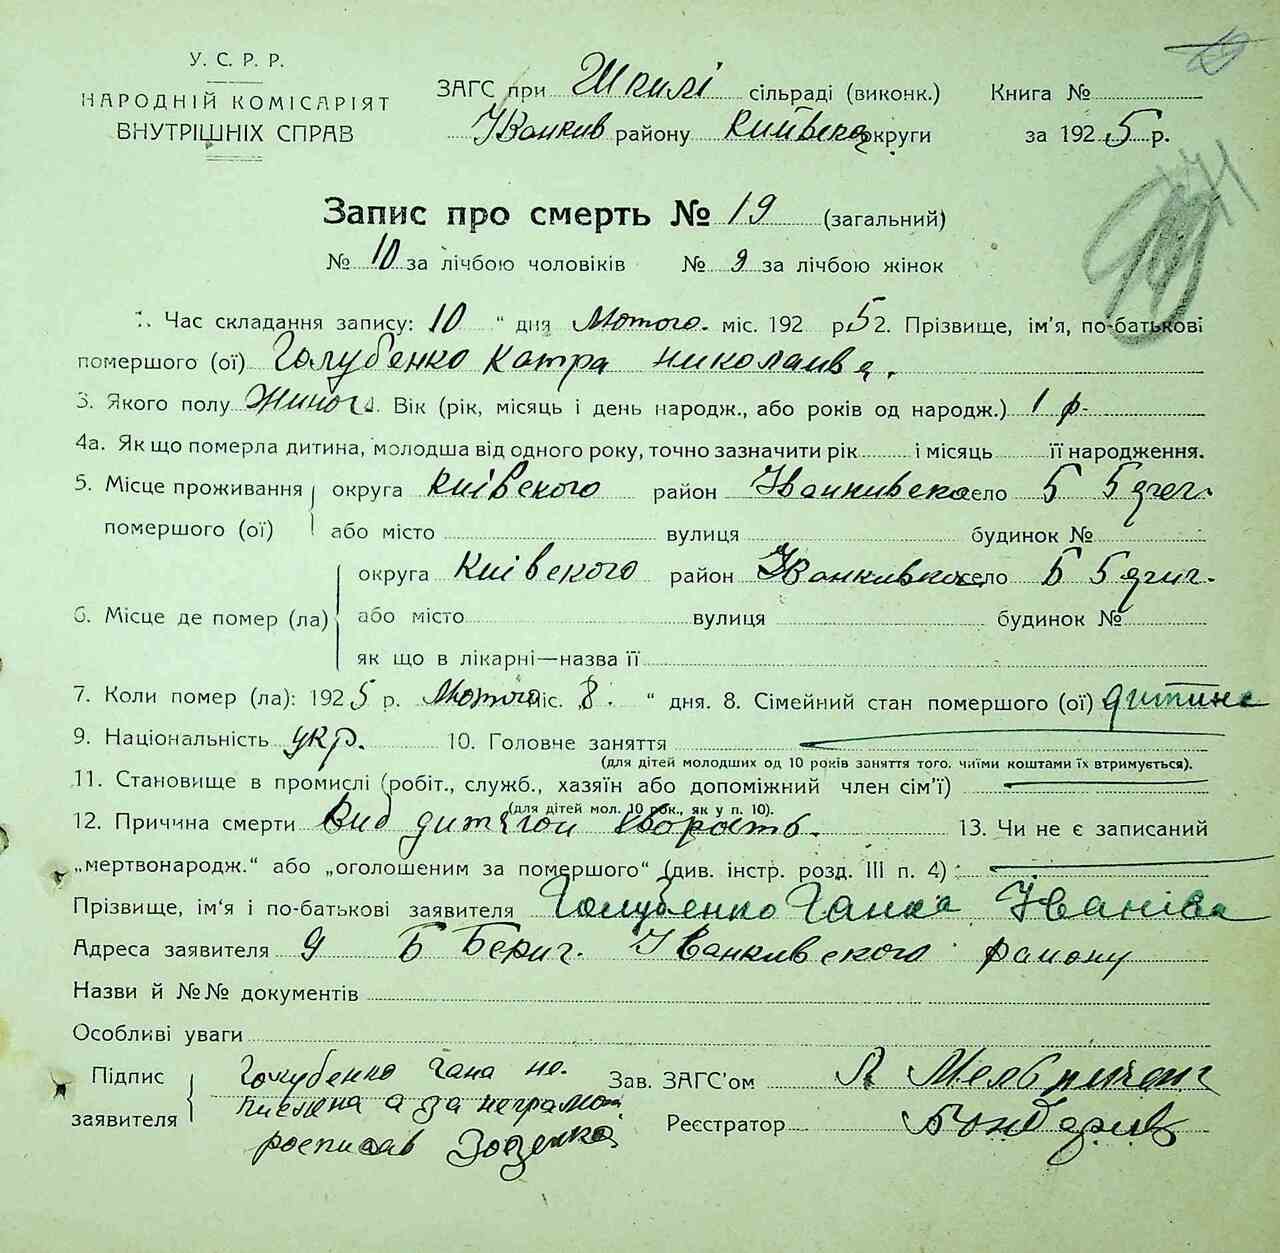 У. С. Р. Р.
НАРОДНІЙ КОМІСАРІЯТ
ВНУТРІШНІХ СПРАВ
ЗАГС при Шкилі сільраді (виконк.) Книга №
Іванкив району київської округи за 1925 р.
Запис про смерть № 19 (загальний)
№ 10 за лічбою чоловіків № 9 за лічбою жінок
1. Час складання запису: 10 “ дня Лютого. міс. 192 р 5 2. Прізвище, ім'я, по-батькові
помершого (ої) Голубенко Катра Николаивя.
3. Якого полу Жиного. Вік (рік, місяць і день народж., або років од народж.) 1 р.
4а. Як що померла дитина, молодша від одного року, точно зазначити рік і місяць її народження.
5. Місце проживання округа київского район Іванкивско село Б
помершого (ої) або місто вулиця будинок №
округа Київского район Іванкивско село Б
6. Місце де помер (ла) або місто вулиця будинок №
як що в лікарні—назва її
7. Коли помер (ла): 1925 р. Лютого міс. „8. “ дня. 8. Сімейний стан помершого (ої) дитина
9. Національність укр. 10. Головне заняття
(для дітей молодших од 10 років заняття того. чиїми коштами їх втримується).
11. Становище в промислі (робіт., служб., хазяїн або допоміжний член сім'ї)
(для дітей мол. 10 рок., як у п. 10).
12. Причина смерти Вид дитячой хворость. 13. Чи не є записаний
„мертвонародж.“ або „оголошеним за помершого“ (див. інстр. розд. III п. 4) :
Прізвище, ім‘я і по-батькові заявителя Голубенко Ганка Іванівна
Адреса заявителя 9 Б Бериг. Іванкивского району
Назви й №№ документів
Особливі уваги
Підпис заявителя Голубенко Гана не.
писмена а за неграмо
росписав
Зав. ЗАГС'ом Л Мельниченк
Реєстратор Бондарив